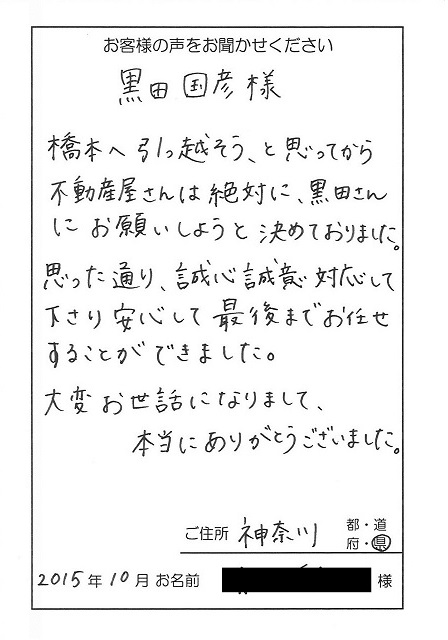 お客様の声をお聞かせください
黒田国彦様
橋本へ引っ越そう、と思ってから
不動産屋さんは絶対に、黒田さん
にお願いしようと決めておりました。
思った通り、誠心誠意対応して
下さり安心して最後までお任せ
することができました。
大変お世話になりまして、
本当にありがとうございました。
ご住所 神奈川 都・道
府・県
2015年10月 お名前 様